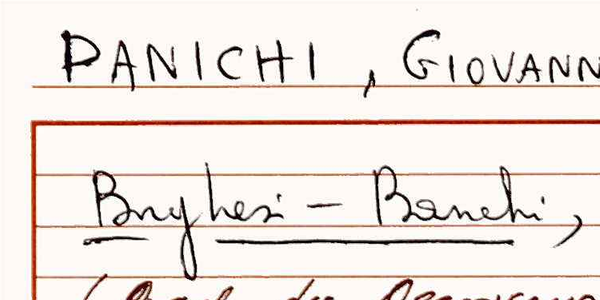 PANICHI, GIOVANN
Borghesi - Banchi,